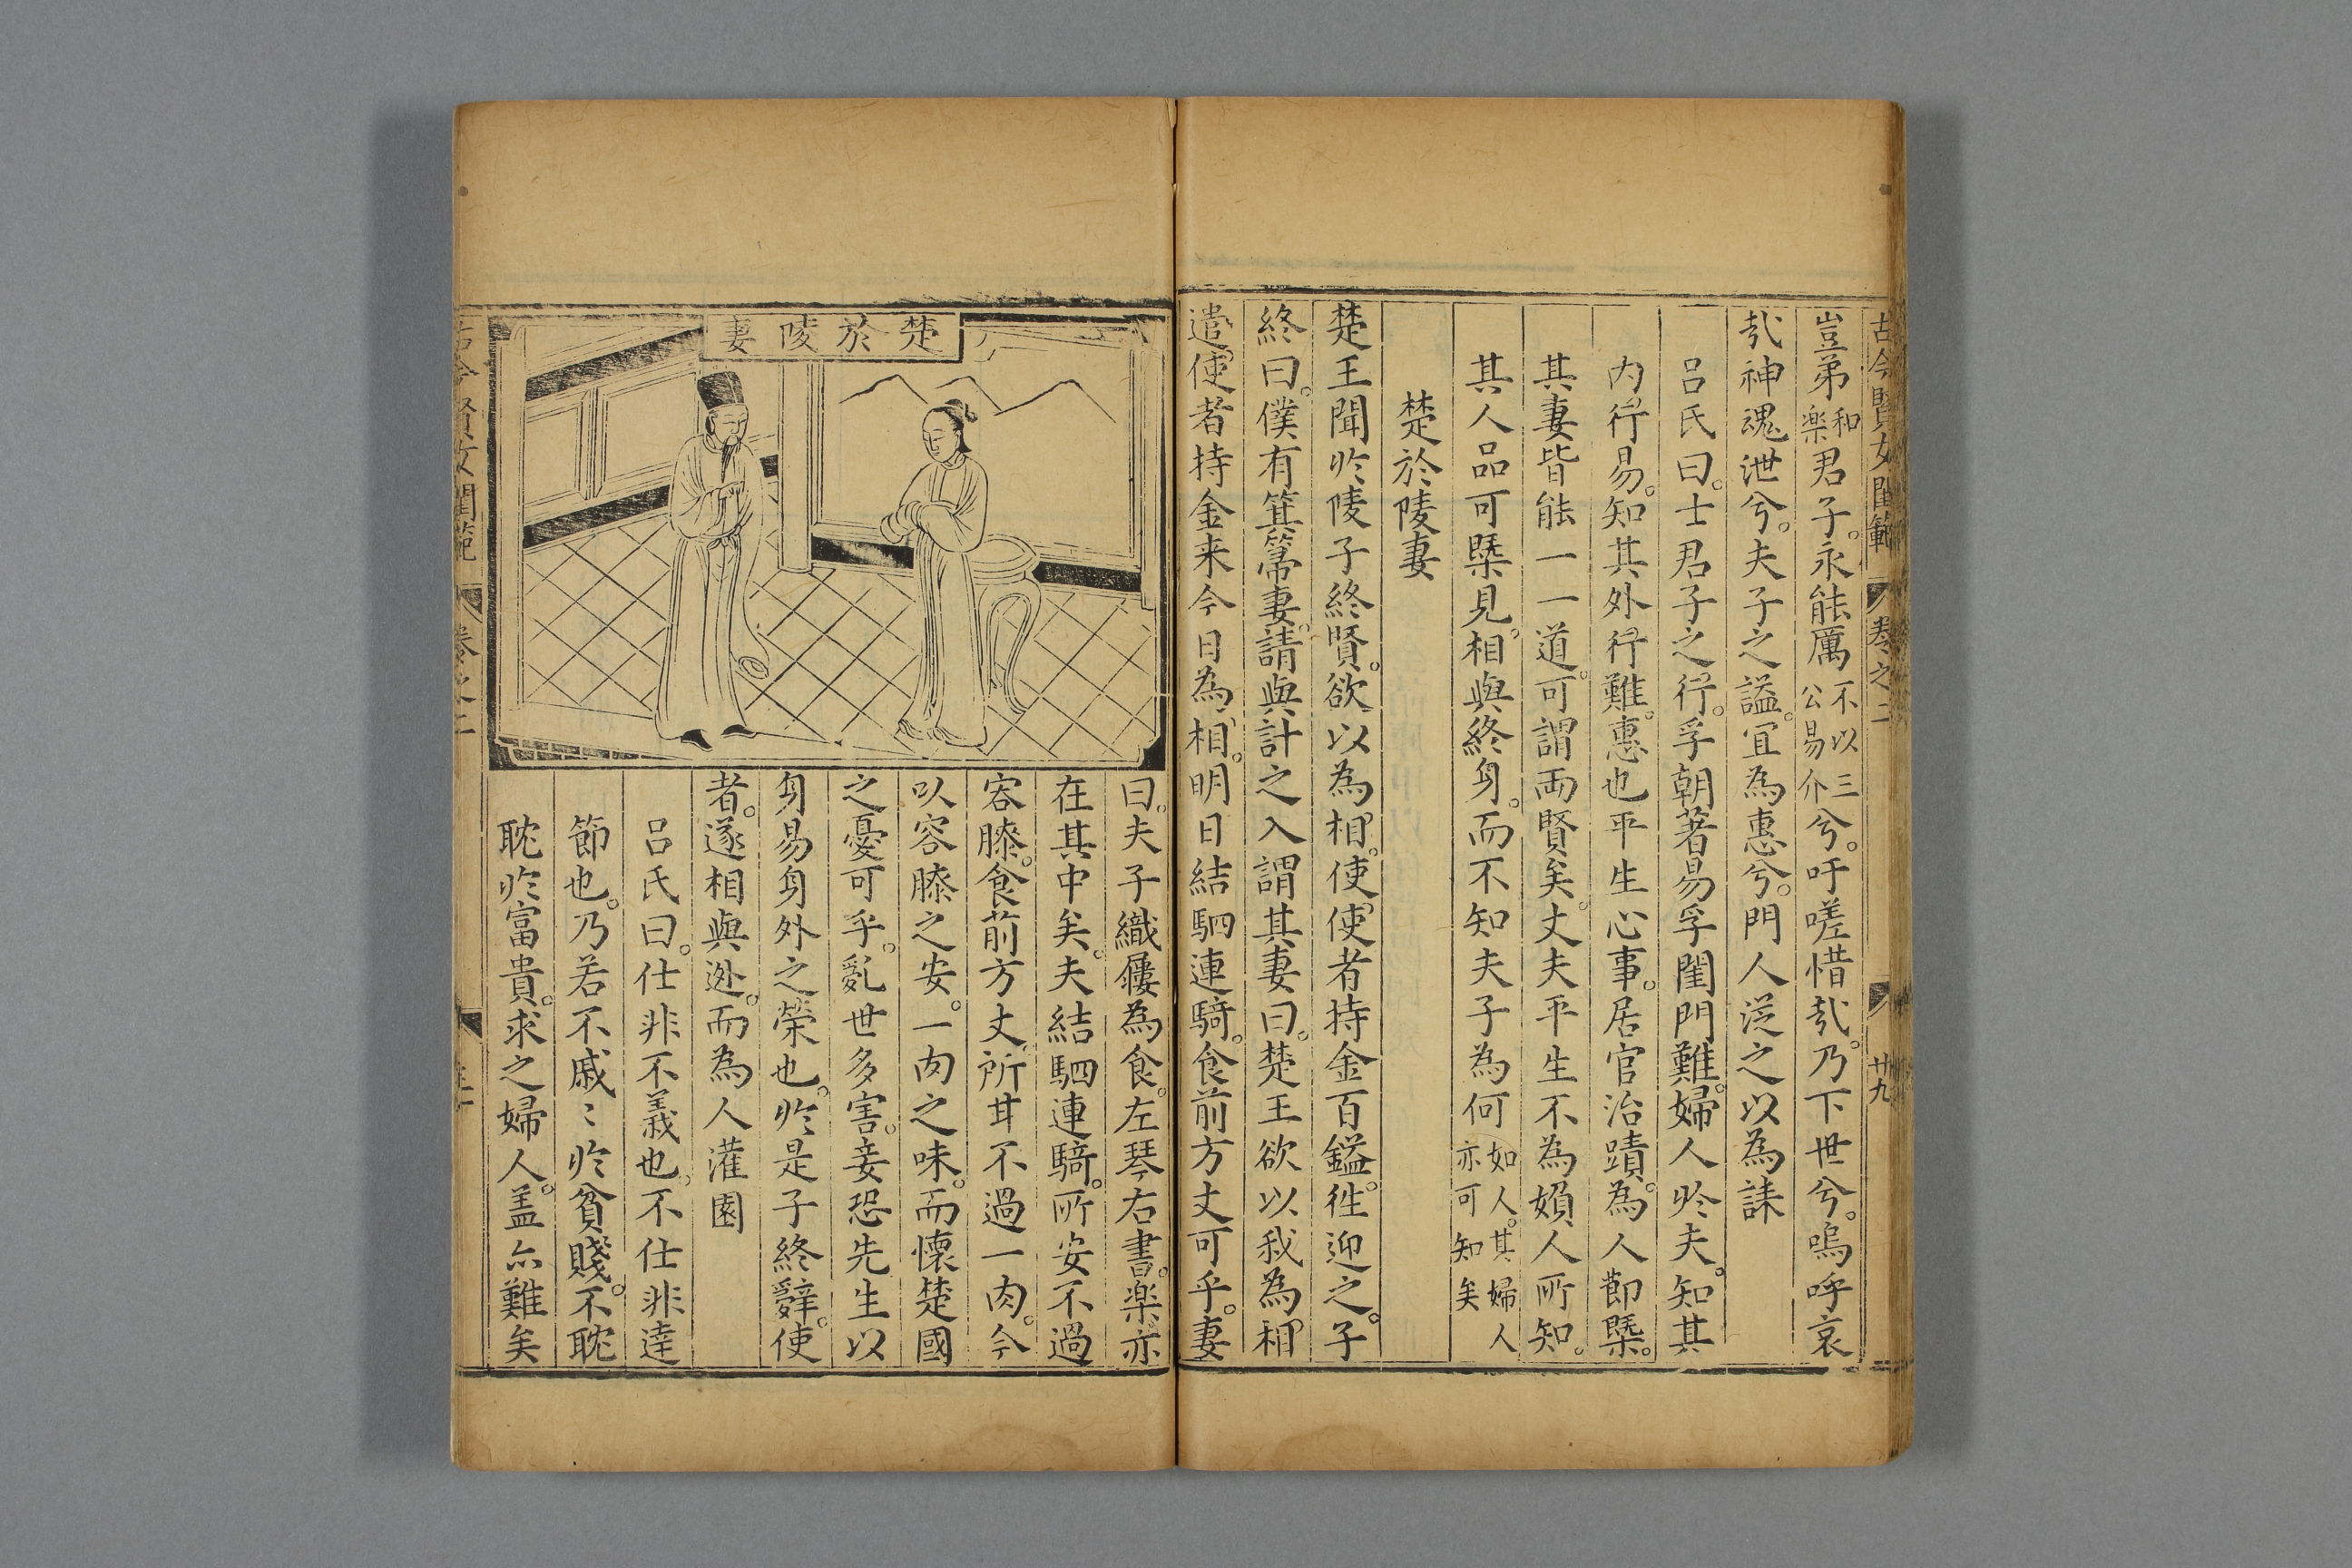 古今賢女閨範 卷之二 廿九
豈弟和樂君子。永能厲不以三公易介兮。吁嗟惜㢤。乃下世兮。嗚呼哀
㢤神魂泄兮。夫子之謚。宜為惠兮。門人從之以為誄
呂氏曰。士君子之行。孚朝著易。孚閨門難。婦人於夫。知其
內行易。知其外行難。惠也平生心事。居官治蹟。為人節槩。
其妻皆能一一道。可謂兩賢矣。丈夫平生不為嬪人所知。
其人品可槩見。相與終身。而不知夫子為何如人。其婦人亦可知矣
楚於陵妻
楚王聞於陵子終賢。欲以為相。使使者持金百鎰。徃迎之。子
終曰。僕有箕箒妻。請與計之入謂其妻曰。楚王欲以我為相
遣使者持金来今日為相。明日結駟連騎。食前方丈可乎。妻
楚於陵妻
曰。夫子織屨為食。左琴右書。樂亦
在其中矣。夫結駟連騎。所安不過
容膝。食前方丈。所甘不過一肉。今
以容膝之安。一肉之味。而懷楚國
之憂可乎。亂世多害。妾恐先生以
身易身外之榮也。於是子終辭。使
者。遂相與迯。而為人灌園
呂氏曰。仕非不義也。不仕非達
節也。乃若不戚〻於貧賤。不耽
耽於富貴。求之婦人。盖亦難矣
古今賢女閨範 卷之二